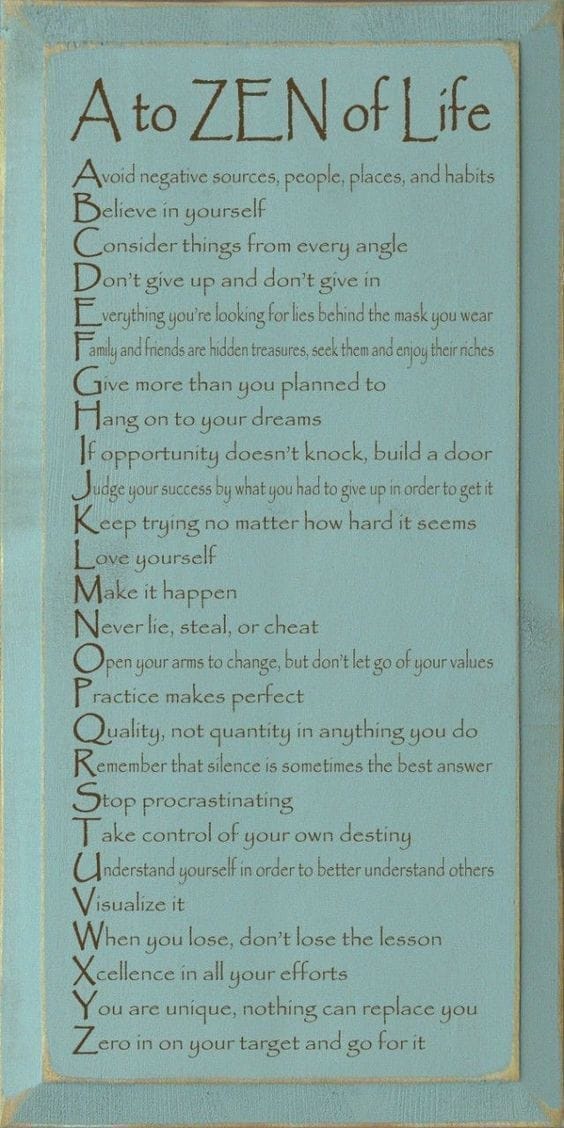 A to ZEN of Life
Avoid negative sources, people, places, and habits
Believe in yourself
Consider things from every angle
Don't give up and don't give in
Everything you're looking for lies behind the mask you wear
Family and friends are hidden treasures, seek them and enjoy their riches
Give more than you planned to
Hang on to your dreams
If opportunity doesn't knock, build a door
Judge your success by what you had to give up in order to get it
Keep trying no matter how hard it seems
Love yourself
Make it happen
Never lie, steal, or cheat
Open your arms to change, but don't let go of your values
Practice makes perfect
Quality, not quantity in anything you do
Remember that silence is sometimes the best answer
Stop procrastinating
Take control of your own destiny
Understand yourself in order to better understand others
Visualize it
When you lose, don't lose the lesson
Xcellence in all your efforts
You are unique, nothing can replace you
Zero in on your target and go for it